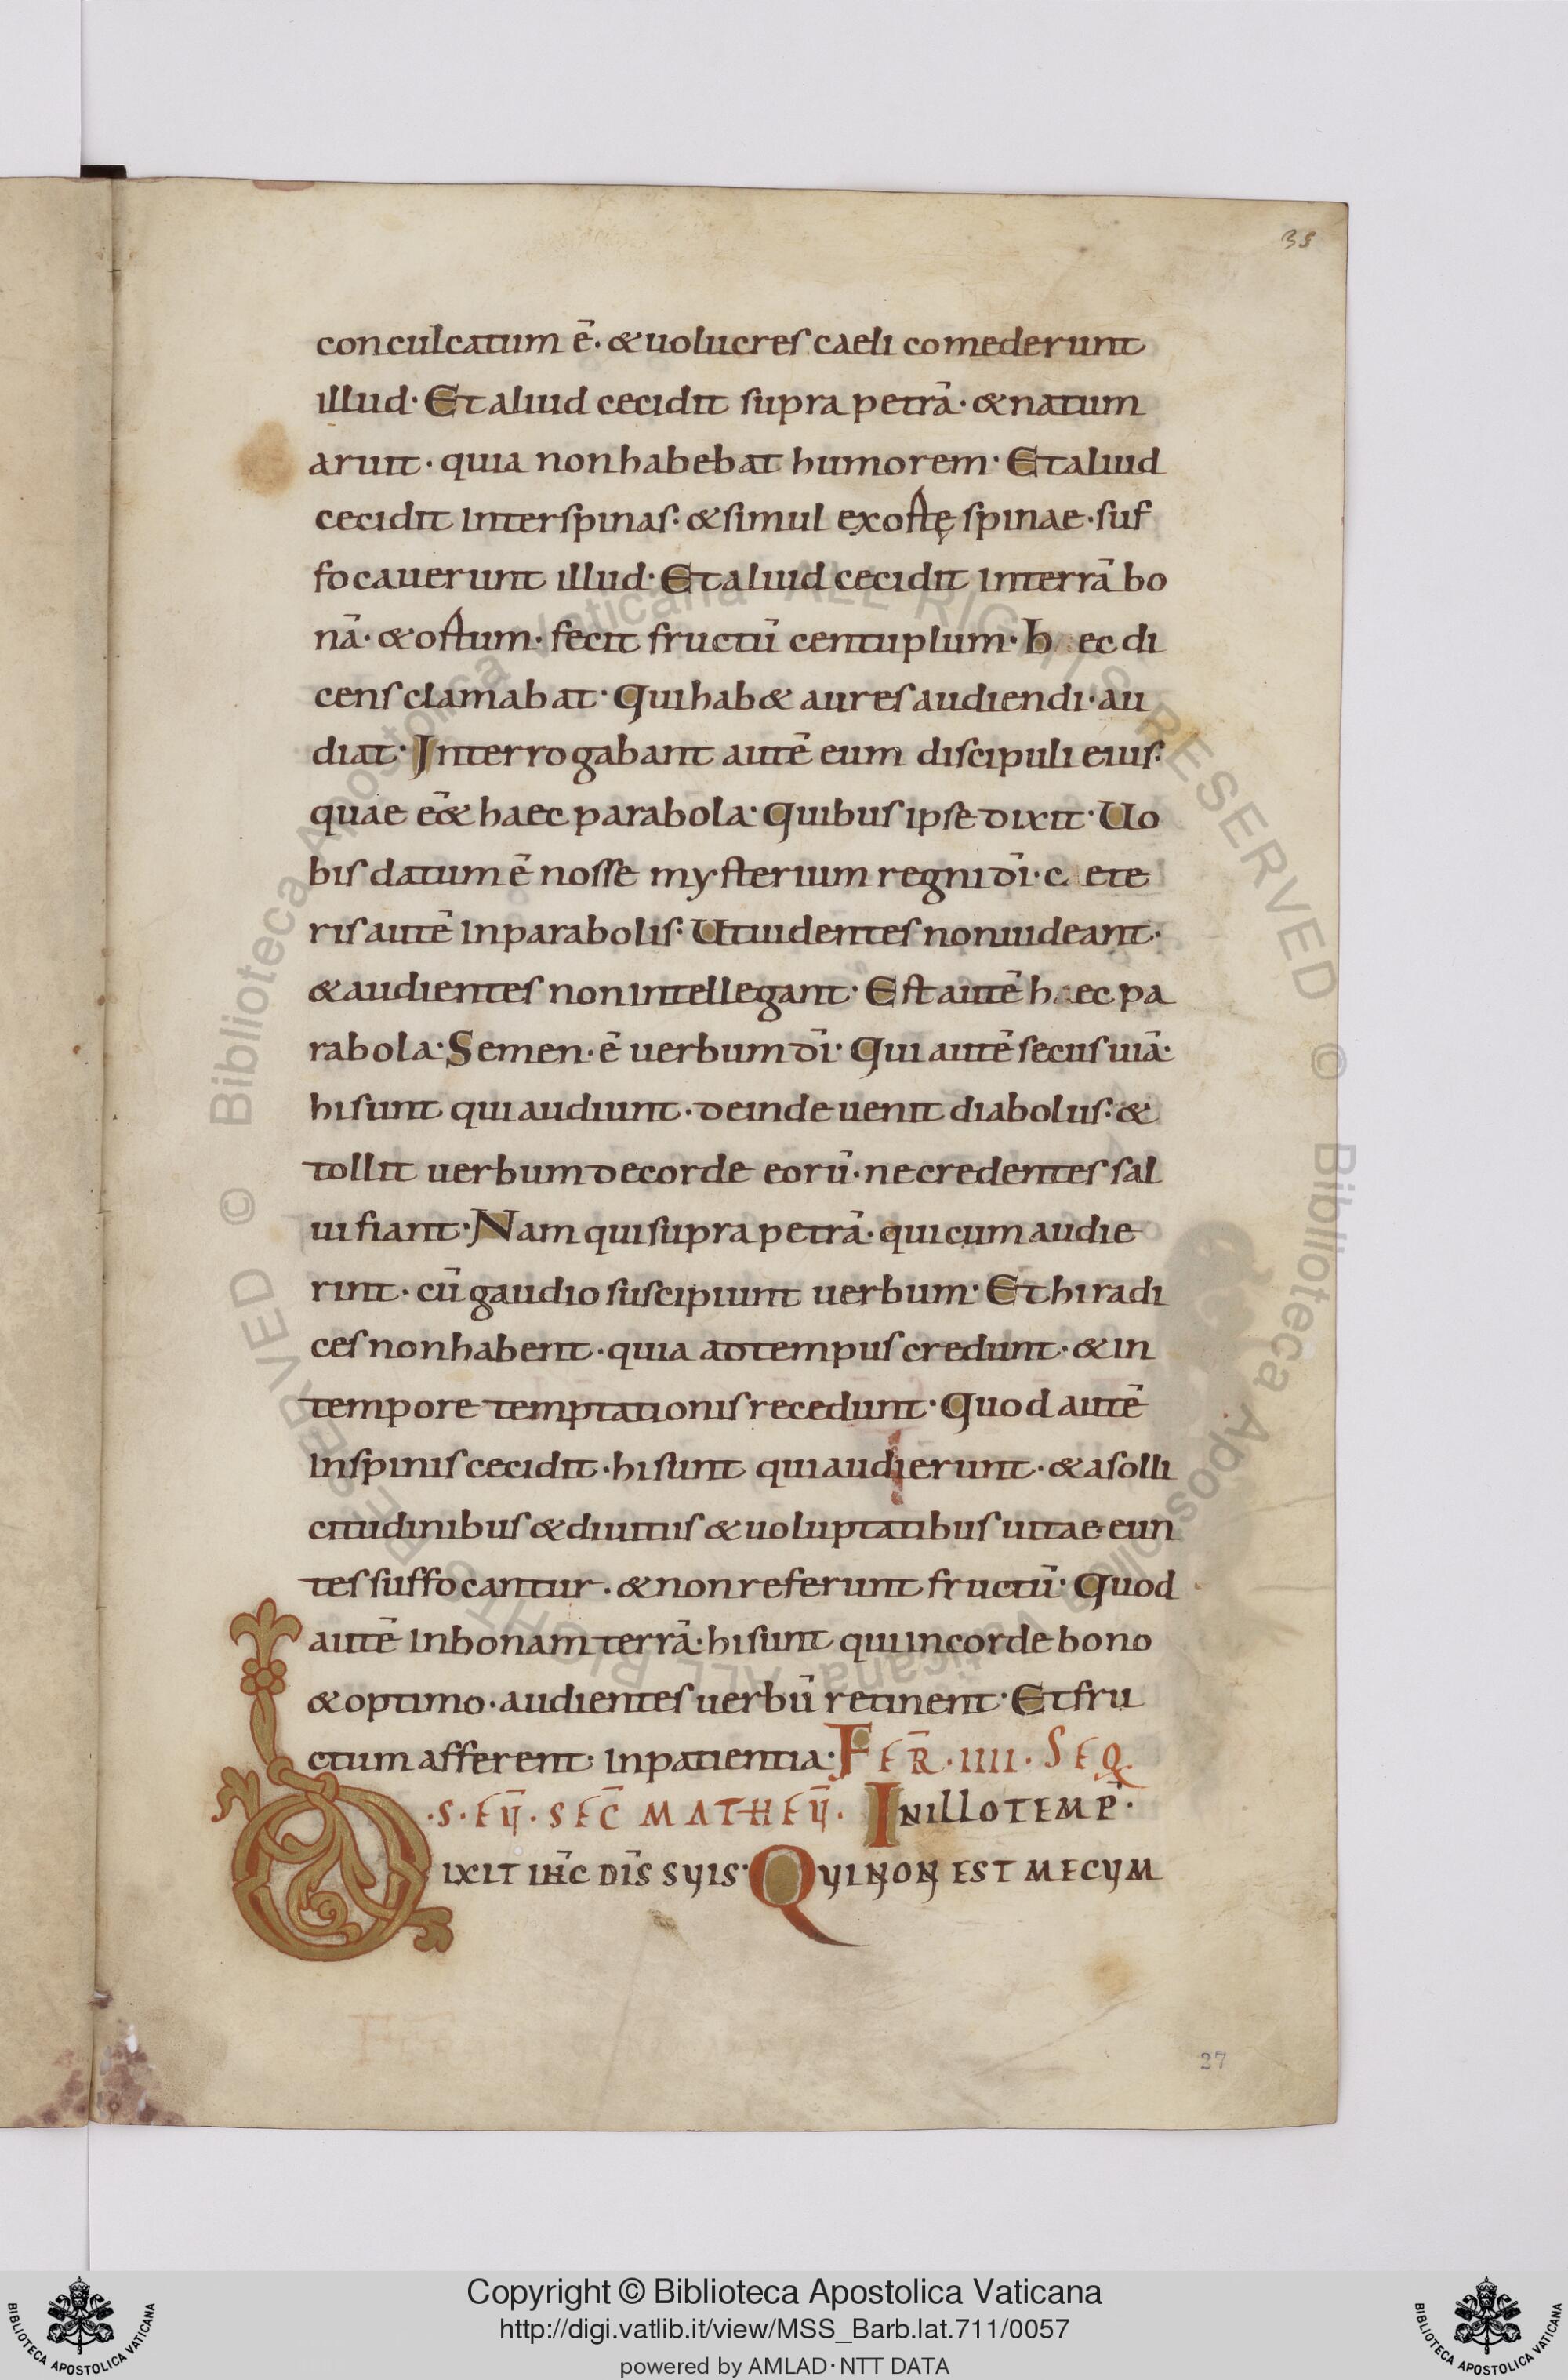 35
conculcatum ē· & uolucres caeli comederunt
illud· Et aliud cecidit supra petrā· & natum
aruit· quia non habebat humorem· Et aliud
cecidit inter spinas· & simul exortę spinae· suf
focauerunt illud· Et aliud cecidit in terrā bo
nā· & ortum· fecit fructū centuplum· h ec di
cens clamabat· Qui hab& aures audiendi· au
diat· Interrogabant autē eum discipuli eius·
quae eē& haec parabola· Quibus ipse dixit· Uo
bis datum ē nosse mysterium regni dī· c ete
ris autē in parabolis· Ut uidentes non uideant·
& audientes non intellegant· Est autē haec pa
rabola· Semen· ē uerbum dī· Qui autē secus uiā·
hi sunt qui audiunt· deinde uenit diabolus· &
tollit uerbum de corde eorū· ne credentes sal
ui fiant· Nam qui supra petrā· qui cum audie
rint· cū gaudio suscipiunt uerbum· Et hi radi
ces non habent· quia ad tempus credunt· & in
tempore temptationis recedunt· Quod autē
in spinis cecidit· hi sunt qui audierunt· & a solli
citudinibus & diuitiis & uoluptatibus uitae eun
tes suffocantur· & non referunt fructū· Quod
autē in bonam terrā· hi sunt qui in corde bono
& optimo· audientes uerbū retinent· Et fru
ctum afferent· in patientia· FER̄· IIII· SEQ·
·S· EŪ· SEC̄ MATHEŪ· IN ILLO TEMP̄·
DIXIT IH̄C DĪS SUIS· QUI NON EST MECUM
27
© Biblioteca Apostolica Vaticana ALL RIGHTS RESERVED © Biblioteca Apostolica Vaticana ALL RIGHTS RESERVED
Copyright © Biblioteca Apostolica Vaticana
http://digi.vatlib.it/view/MSS_Barb.lat.711/0057
powered by AMLAD·NTT DATA
BIBLIOTECA APOSTOLICA VATICANA
BIBLIOTECA APOSTOLICA VATICANA